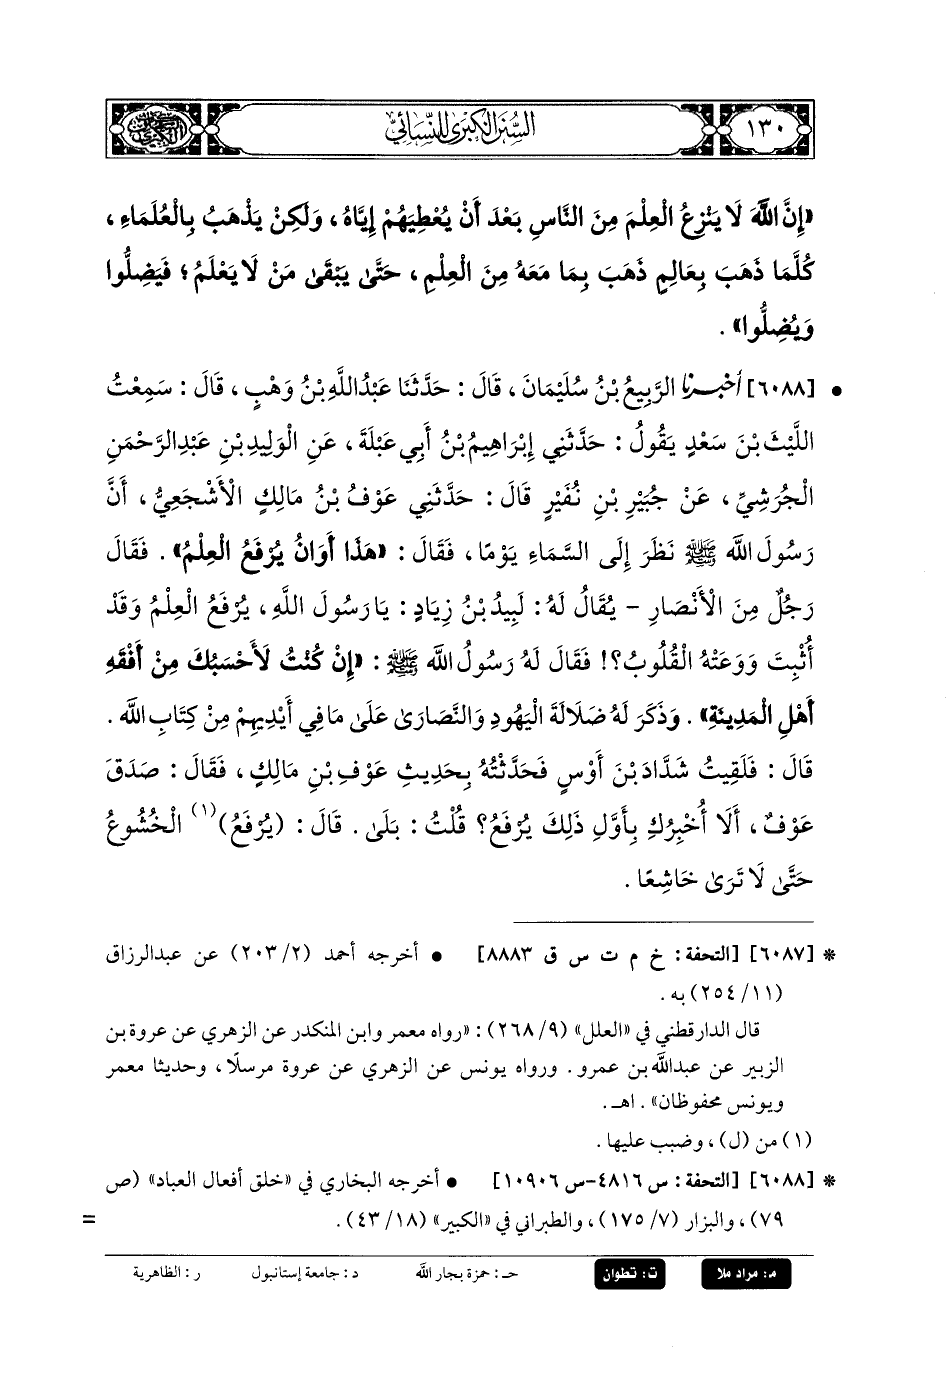 السُّنَنُ الْكِبْرَى لِلنَّسَائِيِّ
١٣٠
«إِنَّ اللَّهَ لَا يَنْزِعُ الْعِلْمَ مِنَ النَّاسِ بَعْدَ أَنْ يُعْطِيَهُمْ إِيَّاهُ، وَلَكِنْ يَذْهَبُ بِالْعُلَمَاءِ،
كُلَّمَا ذَهَبَ بِعَالِمٍ ذَهَبَ بِمَا مَعَهُ مِنَ الْعِلْمِ، حَتَّى يَبْقَى مَنْ لَا يَعْلَمُ؛ فَيَضِلُّوا
وَيُضِلُّوا».
• [٦٠٨٨] أَخْبَرَنَا الرَّبِيعُ بْنُ سُلَيْمَانَ، قَالَ: حَدَّثَنَا عَبْدُاللَّهِ بْنُ وَهْبٍ، قَالَ: سَمِعْتُ
اللَّيْثَ بْنَ سَعْدٍ يَقُولُ: حَدَّثَنِي إِبْرَاهِيمُ بْنُ أَبِي عَبْلَةَ، عَنِ الْوَلِيدِ بْنِ عَبْدِالرَّحْمَنِ
الْجُرَشِيِّ، عَنْ جُبَيْرِ بْنِ نُفَيْرٍ قَالَ: حَدَّثَنِي عَوْفُ بْنُ مَالِكٍ الْأَشْجَعِيُّ، أَنَّ
رَسُولَ اللَّهِ ﷺ نَظَرَ إِلَى السَّمَاءِ يَوْمًا، فَقَالَ: «هَذَا أَوَانُ يُرْفَعُ الْعِلْمُ». فَقَالَ
رَجُلٌ مِنَ الْأَنْصَارِ - يُقَالُ لَهُ: لَبِيدُ بْنُ زِيَادٍ: يَا رَسُولَ اللَّهِ، يُرْفَعُ الْعِلْمُ وَقَدْ
أُثْبِتَ وَوَعَتْهُ الْقُلُوبُ؟! فَقَالَ لَهُ رَسُولُ اللَّهِ ﷺ: «إِنْ كُنْتُ لَأَحْسَبُكَ مِنْ أَفْقَهِ
أَهْلِ الْمَدِينَةِ». وَذَكَرَ لَهُ ضَلَالَةَ الْيَهُودِ وَالنَّصَارَى عَلَى مَا فِي أَيْدِيهِمْ مِنْ كِتَابِ اللَّهِ.
قَالَ: فَلَقِيتُ شَدَّادَ بْنَ أَوْسٍ فَحَدَّثْتُهُ بِحَدِيثِ عَوْفِ بْنِ مَالِكٍ، فَقَالَ: صَدَقَ
عَوْفٌ، أَلَا أُخْبِرُكَ بِأَوَّلِ ذَلِكَ يُرْفَعُ؟ قُلْتُ: بَلَى. قَالَ: (يُرْفَعُ)(١) الْخُشُوعُ
حَتَّى لَا تَرَى خَاشِعًا.
* [٦٠٨٧] [التحفة: خ م ت س ق ٨٨٨٣] • أخرجه أحمد (٢/ ٢٠٣) عن عبدالرزاق
(١١/ ٢٥٤) به.
قال الدارقطني في «العلل» (٩/ ٢٦٨): «رواه معمر وابن المنكدر عن الزهري عن عروة بن
الزبير عن عبدالله بن عمرو. ورواه يونس عن الزهري عن عروة مرسلًا، وحديثا معمر
ويونس محفوظان». اهـ.
(١) من (ل)، وضبب عليها.
* [٦٠٨٨] [التحفة: س ٤٨١٦-س ١٠٩٠٦] • أخرجه البخاري في «خلق أفعال العباد» (ص
٧٩)، والبزار (٧/ ١٧٥)، والطبراني في «الكبير» (١٨/ ٤٣).
=
م: مراد ملا ت: تطوان حـ: حمزة بجار الله د: جامعة إستانبول ر: الظاهرية